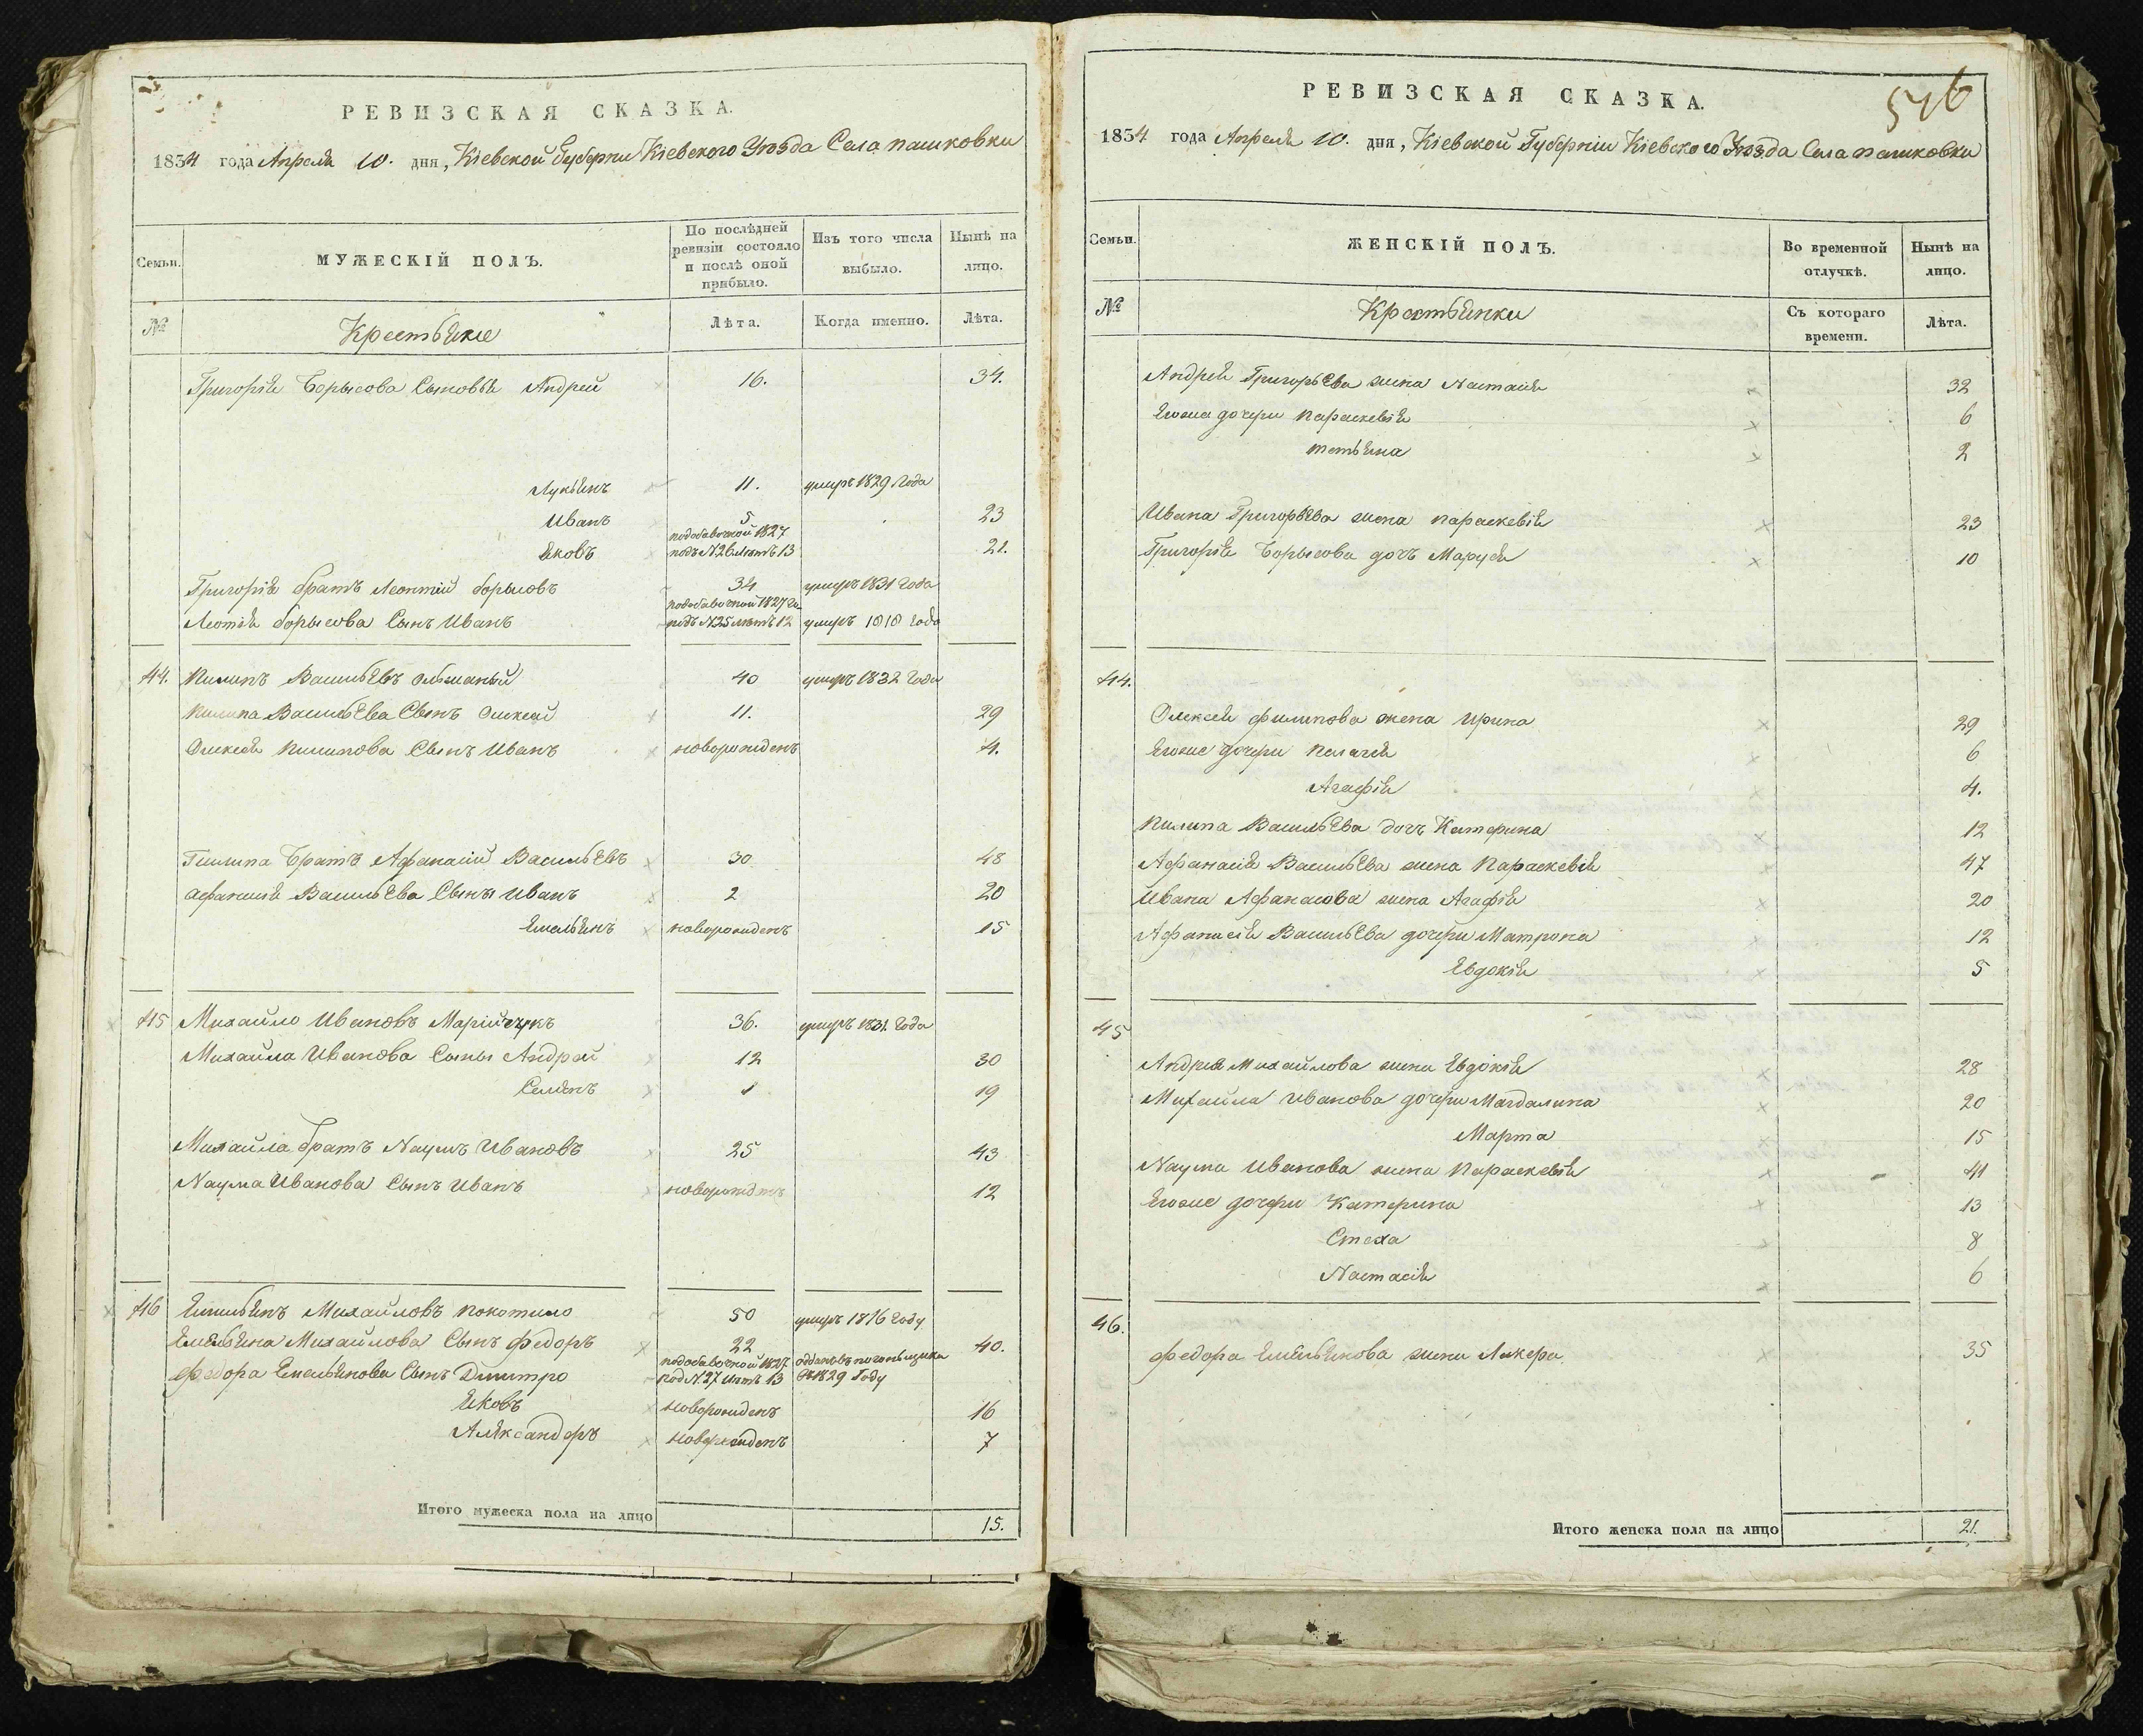 РЕВИЗСКАЯ СКАЗКА.
1834 года Апреля 10. дня, Кіевской Губерніи Кіевского Уезда Села пашковки
Семьи. МУЖЕСКІЙ ПОЛЪ. По послѣдней ревизіи состояло и послѣ оной прибыло. Изъ того числа выбыло. Нынѣ на лицо.
№ Крестьяне Лѣта. Когда именно. Лѣта.
Григорія Борысова Сыновья Андрей 16. 34.
Лукьянъ 11. умиръ 1829 Года
Иванъ 5 23
подобавочной 1827
Яковъ подъ №26 летъ 13 21.
Григорія братъ Леонтій борысовъ 34 умиръ 1831 Года
подобавочной 1827
Леотія борысова Сынъ Иванъ подъ №25 летъ 12 умиръ 1818 Года
44. Пилипъ Васильевъ 40 умиръ 1832 Года
Пилипа Васильева Сынъ Олексей 11. 29
Олексея Пилипова Сынъ Иванъ новорожденъ 4.
Пилипа Братъ Афанасій Васильевъ 30 48
Афанасія Васильева Сыны Иванъ 2 20
Емельянъ новорожденъ 15
45 Михайло Ивановъ Марійчукъ 36. умиръ 1831. Года
Михайла Иванова Сыны Андрей 12 30
Семенъ 1 19
Михайла братъ Наумъ Ивановъ 25 43
Наума Иванова Сынъ Иванъ новорожденъ 12
46 Емельянъ Михайловъ покотило 50 умиръ 1816 Году
Емельяна Михайлова Сынъ Федоръ 22 40.
подобавочной 1827
Федора Емельянова Сынъ Дмитро под №27 летъ 13 1829 Году
Яковъ новорожденъ 16
Александеръ новорожденъ 7
Итого мужеска пола на лицо 15.
546
РЕВИЗСКАЯ СКАЗКА.
1834 года Апреля 10. дня, Кіевской Губерніи Кіевского Уезда Села пашковки
Семьи. ЖЕНСКІЙ ПОЛЪ. Во временной отлучкѣ. Нынѣ на лицо.
№ Крестьянки Съ котораго времени. Лѣта.
Андрея Григорьева жена Настасія 32
Егоже дочери Параскевія 6
тетьяна 2
Ивана Григорьева жена параскевія 23
Григорія Борысова дочь Маруся 10
44.
Олексея филипова жена Ирина 29
Егоже дочери Пелагея 6
Агафія 4.
Пилипа Васильева дочь Катерина 12
Афанасія Васильева жена Параскевія 47
Ивана Афанасова жена Агафія 20
Афанасія Васильева дочери Матрона 12
Евдокія 5
45
Андрея Михайлова жена Евдокія 28
Михайла Иванова дочери Магдалина 20
Марта 15
Наума Иванова жена Параскевія 41
Егоже дочери Катерина 13
Стеха 8
Настасія 6
46.
федора Емельянова жена Ликера 35
Итого женска пола на лицо 21.